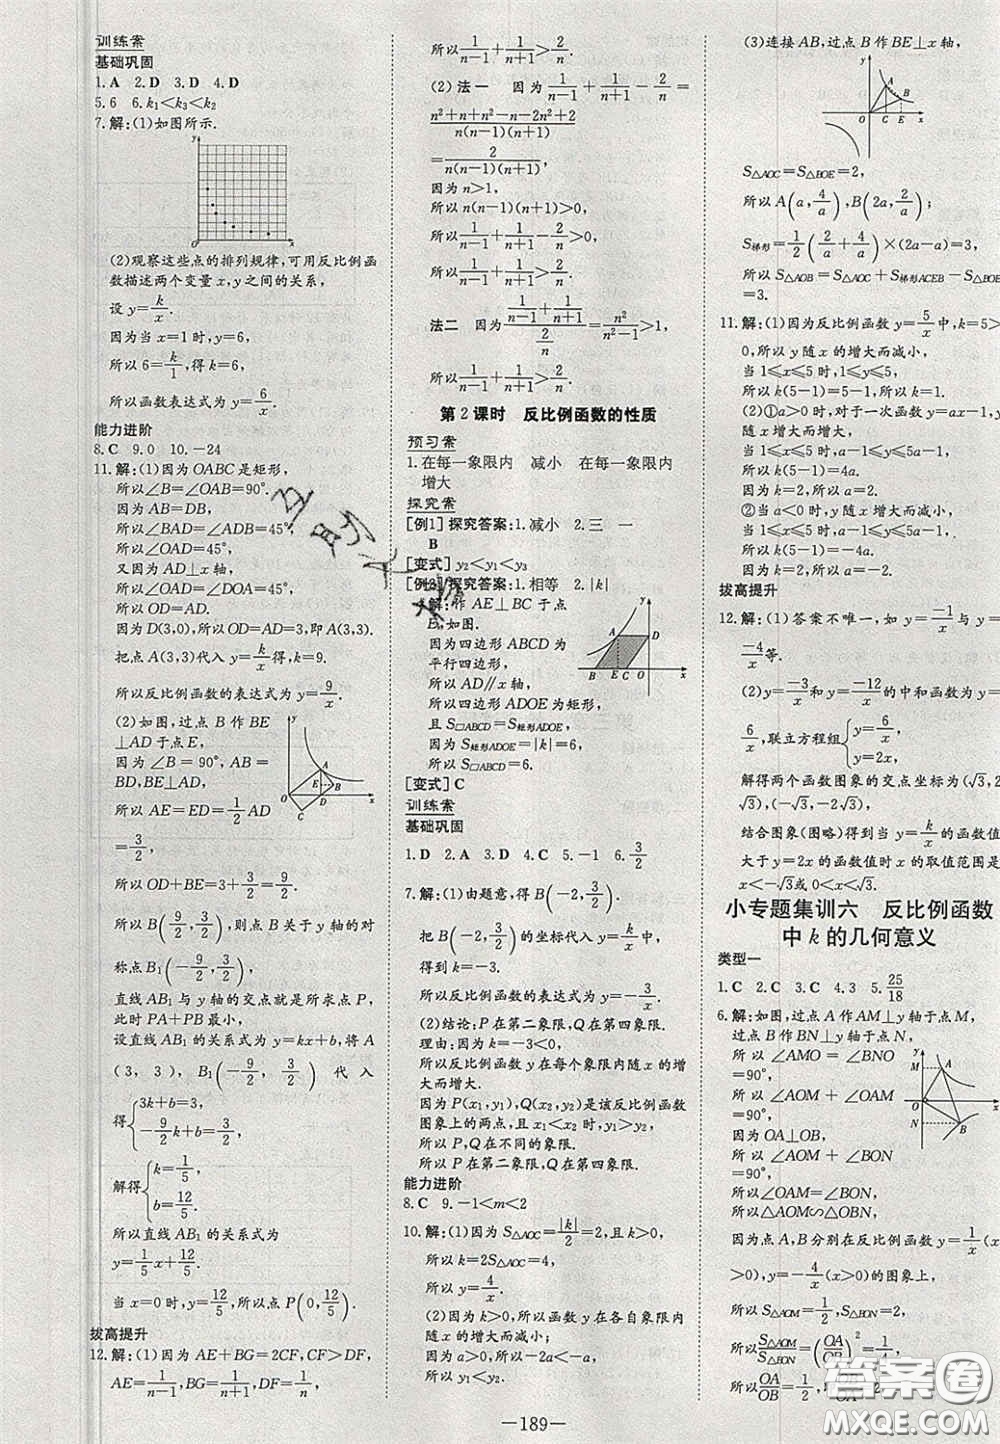 训练案
基础巩固
1.A 2.D 3.D 4.D
5.6 6.k₁<k₃<k₂
7.解:(1)如图所示.
(2)观察这些点的排列规律,可用反比例函
数描述两个变量x,y之间的关系,
设y=k/x.
因为当x=1时,y=6,
所以6=k/1,得k=6,
所以函数表达式为y=6/x.
能力进阶
8.C 9.0 10.-24
11.解:(1)因为OABC是矩形,
所以∠B=∠OAB=90°.
因为AB=DB,
所以∠BAD=∠ADB=45°,
所以∠OAD=45°,
又因为AD⊥x轴,
所以∠OAD=∠DOA=45°,
所以OD=AD.
因为D(3,0),所以OD=AD=3,即A(3,3).
把点A(3,3)代入y=k/x得k=9.
所以反比例函数的表达式为y=9/x.
(2)如图,过点B作BE
⊥AD于点E,
因为∠B=90°,AB=BD,
所以AE=ED=1/2AD
=3/2,
所以OD+BE=3+3/2=9/2,
所以B(9/2,3/2),则点B关于y轴的对
称点B₁(-9/2,3/2),
直线AB₁与y轴的交点就是所求点P,
此时PA+PB最小,
设直线AB₁的关系式为y=kx+b,将A
(3,3),B₁(-9/2,3/2)代入
得{3k+b=3, -9/2k+b=3/2,
解得{k=1/5, b=12/5.
所以直线AB₁的关系式为
y=1/5x+12/5.
当x=0时,y=12/5,所以点P(0,12/5).
拔高提升
12.解:(1)因为AE+BG=2CF,CF>DF,
AE=1/(n-1),BG=1/(n+1),DF=1/n,
所以1/(n-1)+1/(n+1)>2/n.
(2)法一 因为1/(n-1)+1/(n+1)-2/n=
(n²+n+n²-n-2n²+2)/(n(n-1)(n+1))
=2/(n(n-1)(n+1)),
因为n>1,
所以n(n-1)(n+1)>0,
所以1/(n-1)+1/(n+1)-2/n>0,
所以1/(n-1)+1/(n+1)>2/n.
法二 因为(1/(n-1)+1/(n+1))/(2/n)=n²/(n²-1)>1,
所以1/(n-1)+1/(n+1)>2/n.
第2课时 反比例函数的性质
预习案
1.在每一象限内 减小 在每一象限内
增大
探究案
[例1]探究答案:1.减小 2.三 一
B
[变式]y₂<y₁<y₃
[例2]探究答案:1.相等 2.|k|
解:作AE⊥BC于点
E,如图.
因为四边形ABCD为
平行四边形,
所以AD∥x轴,
所以四边形ADOE为矩形,
且S□ABCD=S矩形ADOE,
因为S矩形ADOE=|k|=6,
所以S□ABCD=6.
[变式]C
训练案
基础巩固
1.D 2.A 3.D 4.C 5.-1 6.3/2
7.解:(1)由题意,得B(-2,3/2),
把B(-2,3/2)的坐标代入y=k/x中,
得到k=-3,
所以反比例函数的表达式为y=-3/x.
(2)结论:P在第二象限,Q在第四象限.
理由:因为k=-3<0,
所以反比例函数y在每个象限内随x的
增大而增大,
因为P(x₁,y₁),Q(x₂,y₂)是该反比例函数
图象上的两点,且x₁<x₂时,y₁>y₂,
所以P,Q在不同的象限,
所以P在第二象限,Q在第四象限.
能力进阶
8.C 9.-1<m<2
10.解:(1)因为S△AOC=|k|/2=2,且k>0,
所以k=2S△AOC=4,
所以y=4/x.
(2)因为k>0,所以函数y在各自象限内
随x的增大而减小;
因为a>0,所以-2a<-a,
所以y₁<y₂.
(3)连接AB,过点B作BE⊥x轴,
S△AOC=S△BOE=2,
所以A(a,4/a),B(2a,2/a);
S梯形=1/2(2/a+4/a)×(2a-a)=3,
所以S△AOB=S△AOC+S梯形ACEB-S△BOE
=3.
11.解:(1)因为反比例函数y=5/x中,k=5>
0,所以y随x的增大而减小,
当1≤x≤5时,1≤y≤5,
所以k(5-1)=5-1,所以k=1.
(2)①a>0时,对于一次函数y=ax-1,
当1≤x≤5时,a-1≤y≤5a-1,
所以k(5-1)=5a-1-(a-1),
所以k(5-1)=4a.
因为k=2,所以a=2.
②当a<0时,
当1≤x≤5时,5a-1≤y≤a-1,
所以k(5-1)=-4a,
因为k=2,所以a=-2.
拔高提升
12.解:(1)答案不唯一,如y=-1/x与y=
-4/x等.
(2)y=-3/x和y=-12/x的中和函数为y=
6/x,联立方程组{y=6/x, y=2x.
解得两个函数图象的交点坐标为(√3,2
√3),(-√3,-2√3),
结合图象(图略)得到当y=k/x的函数值
大于y=2x的函数值时x的取值范围是
x<-√3或0<x<√3.
小专题集训六 反比例函数
中k的几何意义
类型一
1.C 2.C 3.C 4.3 5.25/18
6.解:如图,过点A作AM⊥y轴于点M,
过点B作BN⊥y轴于点N,
所以∠AMO=∠BNO
=90°,
所以∠AOM+∠OAM
=90°,
因为OA⊥OB,
所以∠AOM+∠BON=90°,
所以∠OAM=∠BON,
所以△AOM∽△OBN,
因为点A,B分别在反比例函数y=1/x(x
>0),y=-4/x(x>0)的图象上,
所以S△AOM=1/2,S△BON=2,
所以S△AOM/S△BON=(OA/OB)²=1/4
所以OA/OB=1/2
—189—
答案圈
MXQE.COM